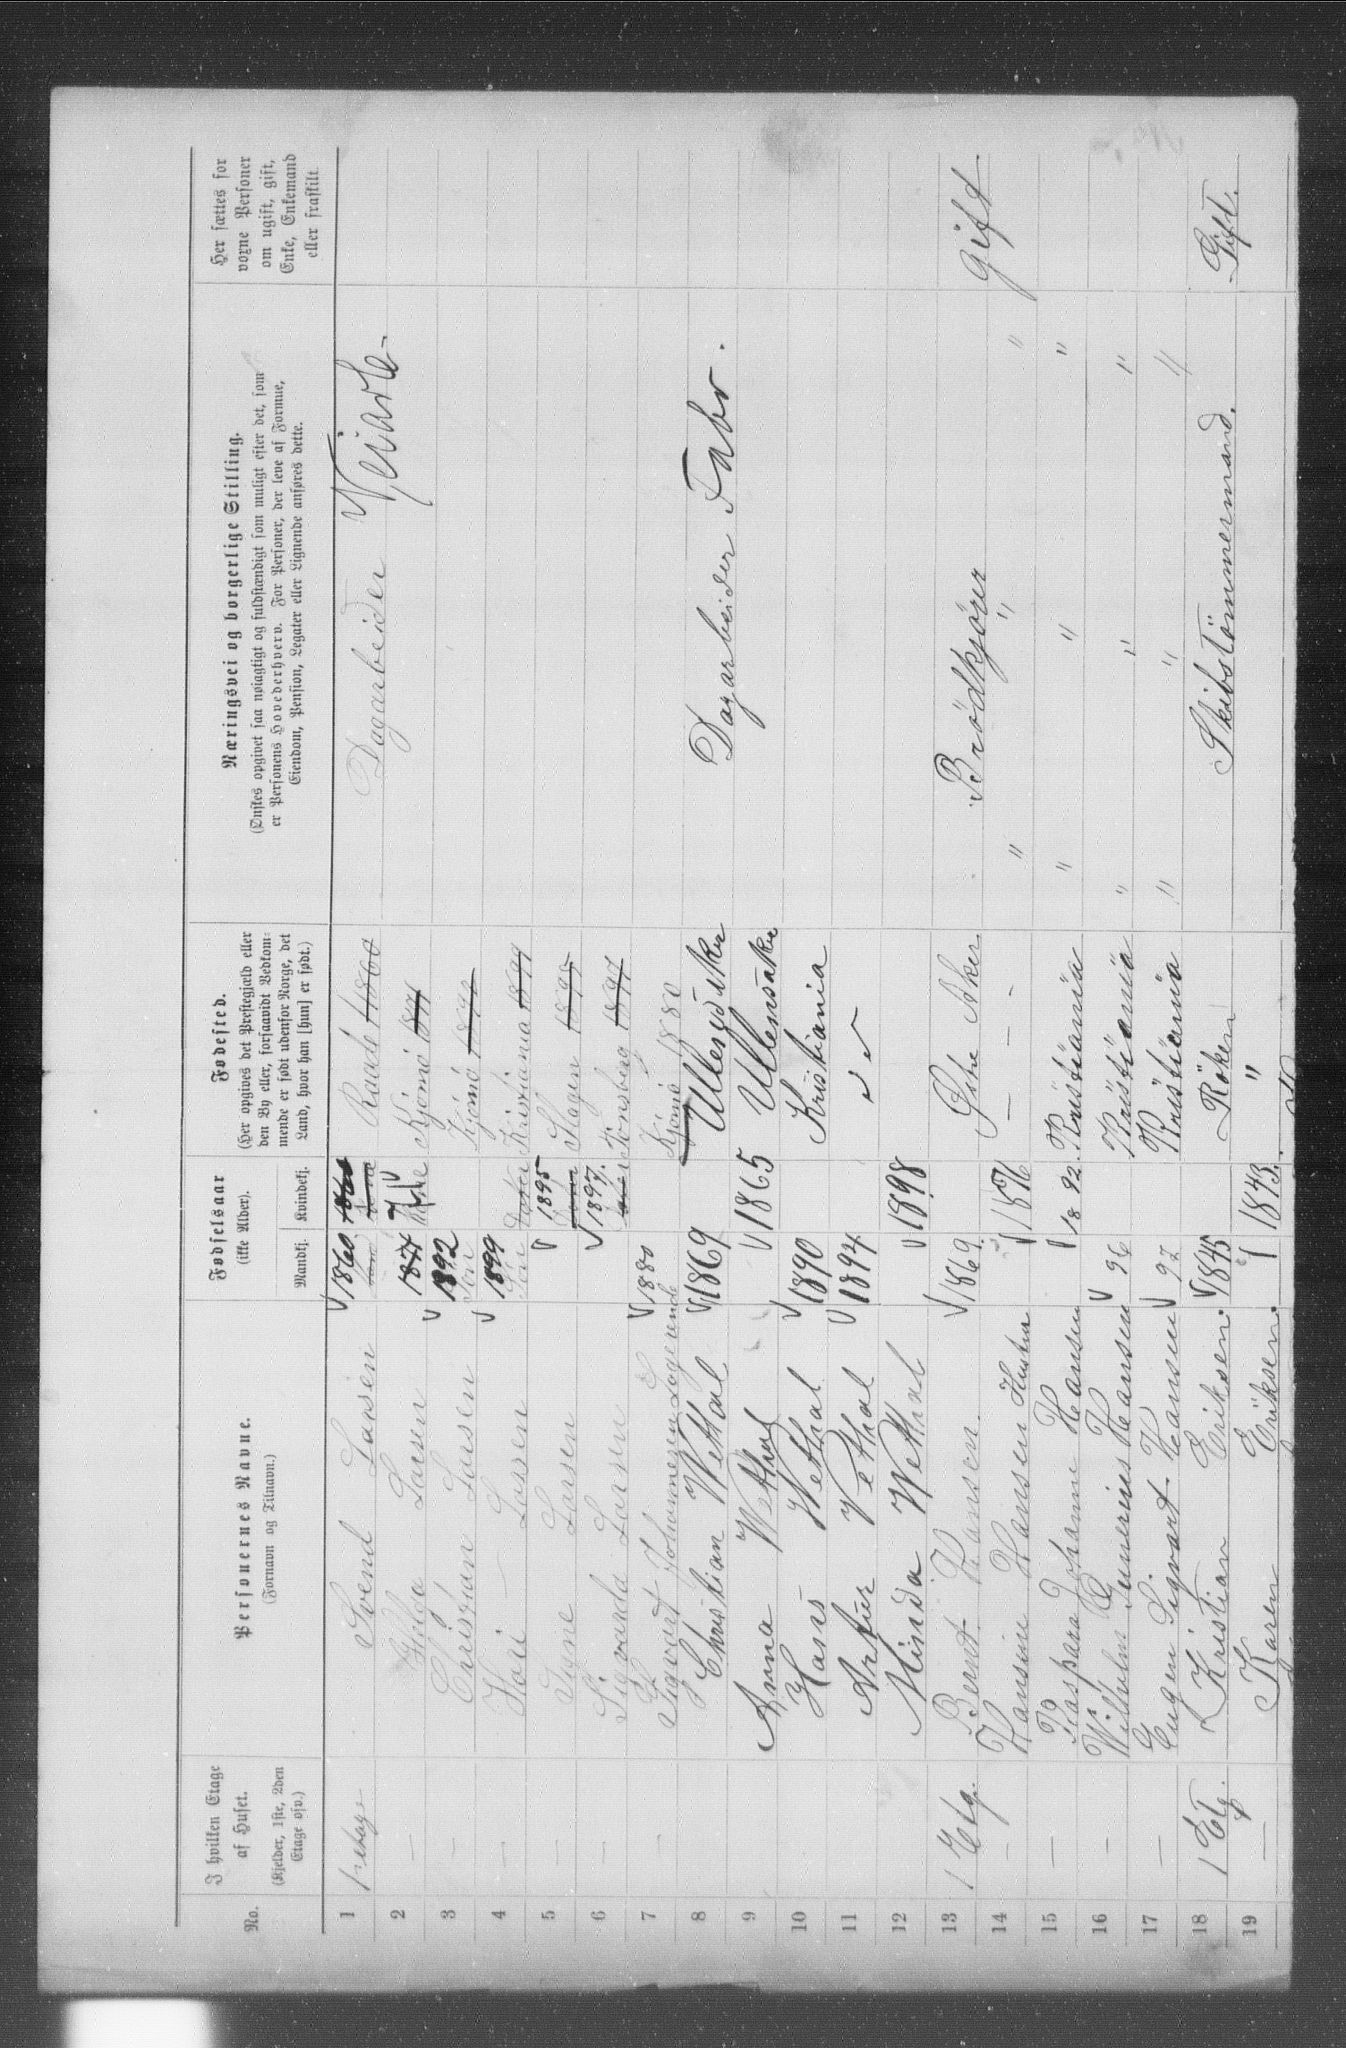 No.
I hvilken Etage
af Huset.
(Kjelder, 1ste, 2den
Etage osv.)
Personernes Navne.
(Fornavn og Tilnavn.)
Fødselsaar
(ikke Alder).
Mandkj. Kvindekj.
Fødested.
(Her opgives det Præstegjeld eller
den By eller, forsaavidt Vedkom-
mende er født udenfor Norge, det
Land, hvor han [hun] er født.)
Næringsvei og borgerlige Stilling.
(Ønskes opgivet saa nøiagtigt og fuldstændigt som muligt efter det, som
er Personens Hovederhverv. For Personer, der leve af Formue,
Eiendom, Pension, Legater eller Lignende anføres dette.
Her sættes for
voxne Personer
om ugift, gift,
Enke, Enkemand
eller fraskilt.
1 1 etage Svend Larsen 1860 Raade 1860 Dagarbeider Veiarb
2 — Hilda Larsen Kjömö 1871
3 — Christian Larsen 1892 Sön Kjömö 1892
4 — Larsen 1899 Sön Kristiania 1899
5 — Signe Larsen 1895 Slagen 1895
6 — Sigvarda Larsen 1897 Tönsberg 1897
7 — Sigvart Johannesen Logerende 1880 Kjömö 1880
8 Christian Wethal 1869 Ullensaker Dagarbeider Fabr.
9 Anna Wethal 1865 Ullensaker
10 Hans Wethal 1890 Kristiania
11 Artur Vethal 1894 〃
12 Minda Wethal 1898
13 1 Etg. Bernt Hansen. 1869. Östre Aker Brödkjörer gift
14 — Hansine Hansen Hustru 1876 — — - 〃 〃 〃
15 — Kaspara Johanne Hansen 1892. Kristiania 〃 〃 〃
16 — Wilhelm Hansen 96 Kristiania 〃 〃 〃
17 — Eugen Sigvart Hansen 97 Kristiania 〃 〃 〃
18 1 Etg. Kristian Eriksen. 1845 Röken Skibstömmermand. Gift.
19 — Karen Eriksen. 1843. 〃